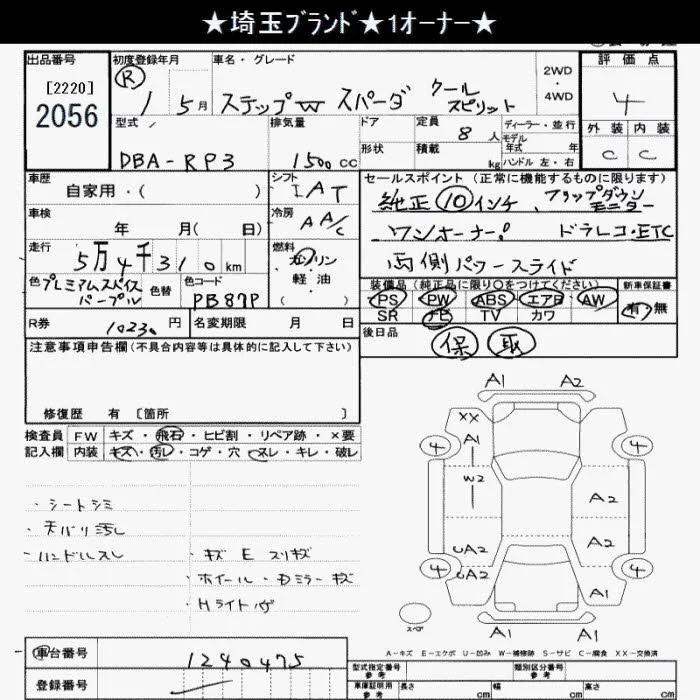 ★埼玉ﾌﾞﾗﾝﾄﾞ★1オーナー★
出品番号
[2220]
2056
初度登録年月
Ⓡ 1 5月
車名・グレード
ステップW スパーダ クール スピリット
2WD
・
4WD
評価点
4
外装 内装
C C
型式
DBA-RP3
排気量
1500cc
ドア
形状
定員 8人
積載 kg
ディーラー・並行
モデル年式 年
ハンドル 左・右
車歴
自家用・( )
車検
年 月( 日)
走行
5万4千310km
色 プレミアムスパイスパープル
色替
色コード
PB87P
シフト
IAT
冷房
AA/C
燃料
ガソリン
軽油
セールスポイント (正常に機能するものに限ります)
純正⑩インチ、フリップダウンモニター
ワンオーナー! ドラレコ・ETC
両側パワースライド
装備品 (純正品に限り○をつけてください)
PS PW ABS エアB AW
SR TV カワ
新車保証書
有・無
後日品
保 取
R券 10230円
名変期限 月 日
注意事項申告欄 (不具合内容等は具体的に記入して下さい)
修復歴 有 〔箇所 〕
検査員記入欄
FW キズ・飛石・ヒビ割・リペア跡・×要
内装 キズ・汚レ・コゲ・穴・スレ・キレ・破レ
・シートシミ
・天バリ汚し
・ハンドルスレ
・キズ E スリキズ
・ホイール・Dミラーキズ
・Hライト
A1 A2
XX
A1
W2
4 4
A2
UA2 A2
UA2
4 4
A1
A1 A2
スペア
A-キズ E-エクボ U-凹み W-補修跡 S-サビ C-腐食 XX-交換済
車台番号
1240475
登録番号
型式指定番号 参考
類別区分番号 参考
車庫証明用 参考
長さ cm 幅 cm 高さ cm